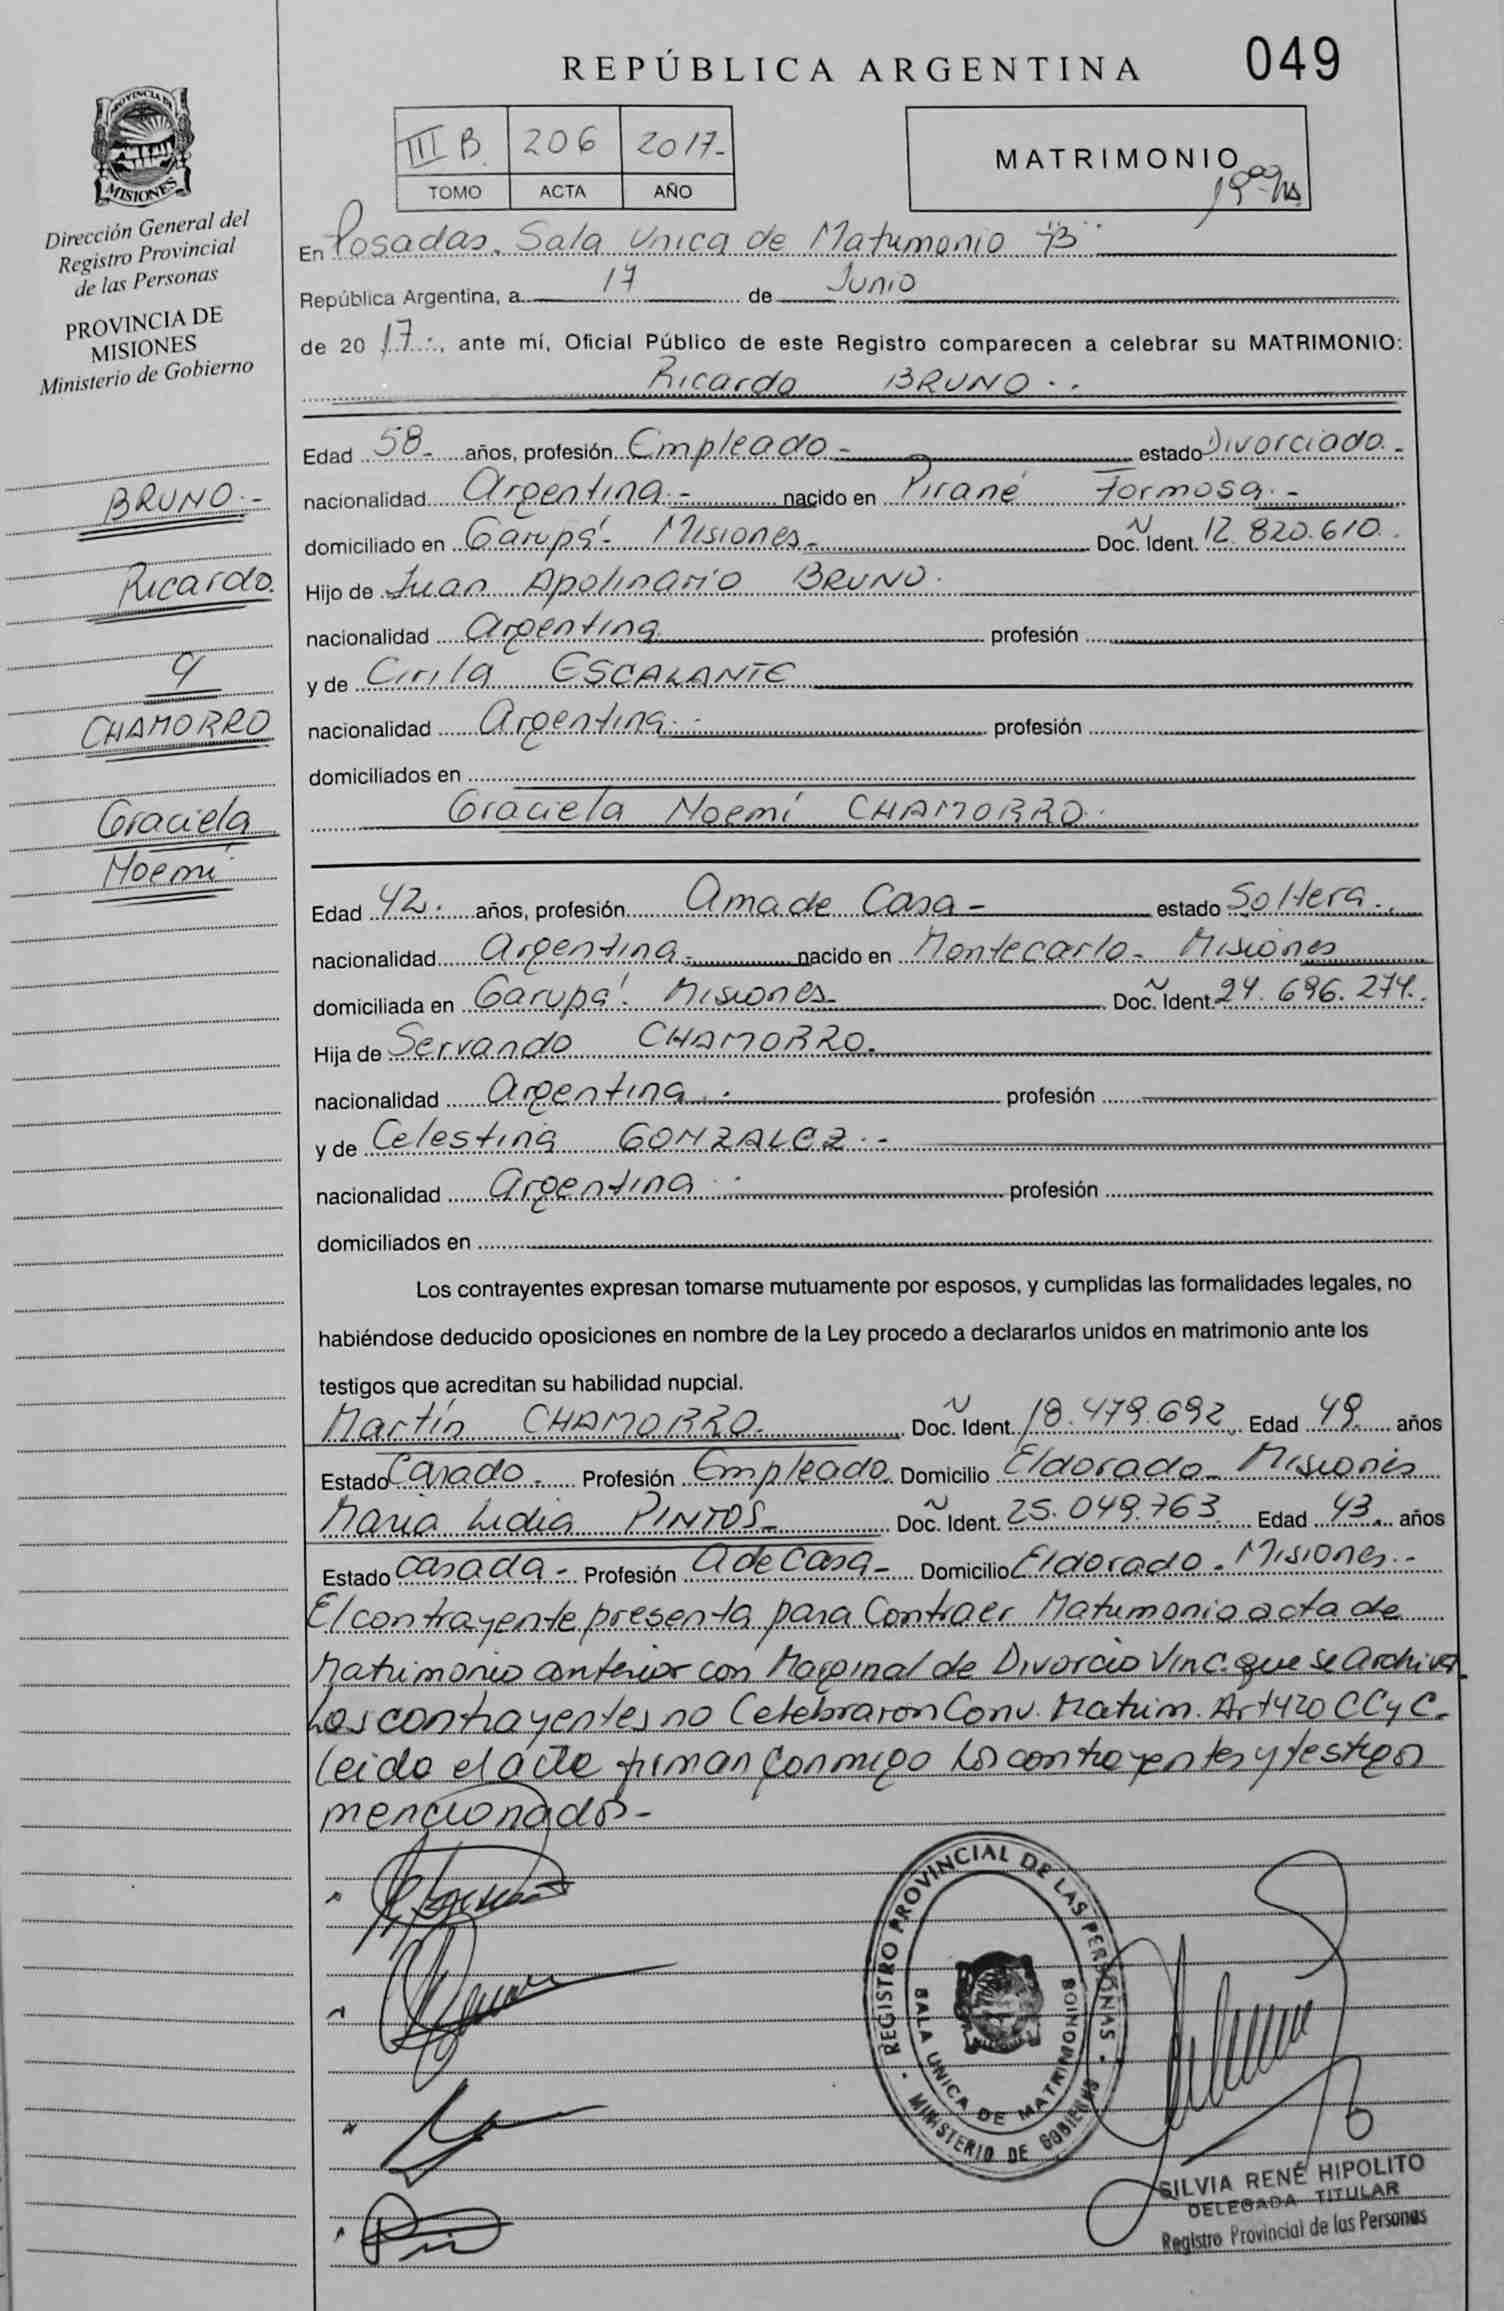 REPÚBLICA ARGENTINA
049
III B. 206 2017-
TOMO ACTA AÑO
MATRIMONIO
19 00 hs.
PROVINCIA DE
MISIONES
Dirección General del
Registro Provincial
de las Personas
PROVINCIA DE
MISIONES
Ministerio de Gobierno
BRUNO.-
Ricardo.
y
CHAMORRO
Graciela
Noemí
En Posadas. Sala Unica de Matrimonio
República Argentina, a 17 de Junio
de 20 17.-, ante mí, Oficial Público de este Registro comparecen a celebrar su MATRIMONIO:
Ricardo BRUNO..
Edad 58- años, profesión Empleado- estado Divorciado.-
nacionalidad Argentina.- nacido en Pirané Formosa.-
domiciliado en Garupá- Misiones- Doc. Ñ Ident. 12.820.610..
Hijo de Juan Apolinario BRUNO.
nacionalidad Argentina profesión
y de Cirila ESCALANTE
nacionalidad Argentina.- profesión
domiciliados en
Graciela Noemí CHAMORRO.
Edad 42. años, profesión Ama de Casa- estado Soltera..
nacionalidad Argentina.- nacido en Montecarlo- Misiones
domiciliada en Garupá. Misiones- Doc. Ñ Ident. 24.696.274..
Hija de Servando CHAMORRO.
nacionalidad Argentina.. profesión
y de Celestina GONZALEZ.-
nacionalidad Argentina.. profesión
domiciliados en
Los contrayentes expresan tomarse mutuamente por esposos, y cumplidas las formalidades legales, no
habiéndose deducido oposiciones en nombre de la Ley procedo a declararlos unidos en matrimonio ante los
testigos que acreditan su habilidad nupcial.
Martín CHAMORRO. Doc. Ñ Ident. 18.479.692. Edad 49. años
Estado Casado- Profesión Empleado. Domicilio Eldorado- Misiones
Maria Lidia PINTOS- Doc. Ñ Ident. 25.049.763. Edad 43. años
Estado Casada- Profesión A de Casa- Domicilio Eldorado. Misiones.-
El contrayente presenta para Contraer Matrimonio acta de
Matrimonio anterior con Marginal de Divorcio Vinc. que se Archiva.
Los contrayentes no Celebraron Conv. Matrim. Art 420 CCyC.
Leido el acta firman conmigo los contrayentes y testigos
mencionados-
REGISTRO PROVINCIAL DE LAS PERSONAS
SALA UNICA DE MATRIMONIOS
MINISTERIO DE GOBIERNO
SILVIA RENÉ HIPOLITO
DELEGADA TITULAR
Registro Provincial de las Personas